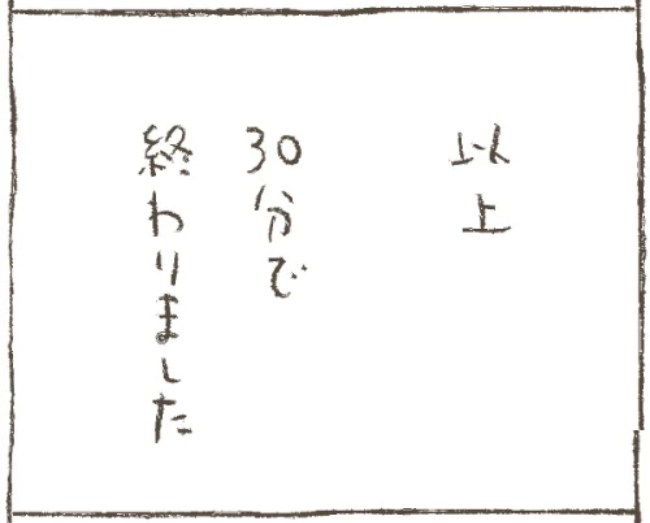 以上
30分で
終わりました